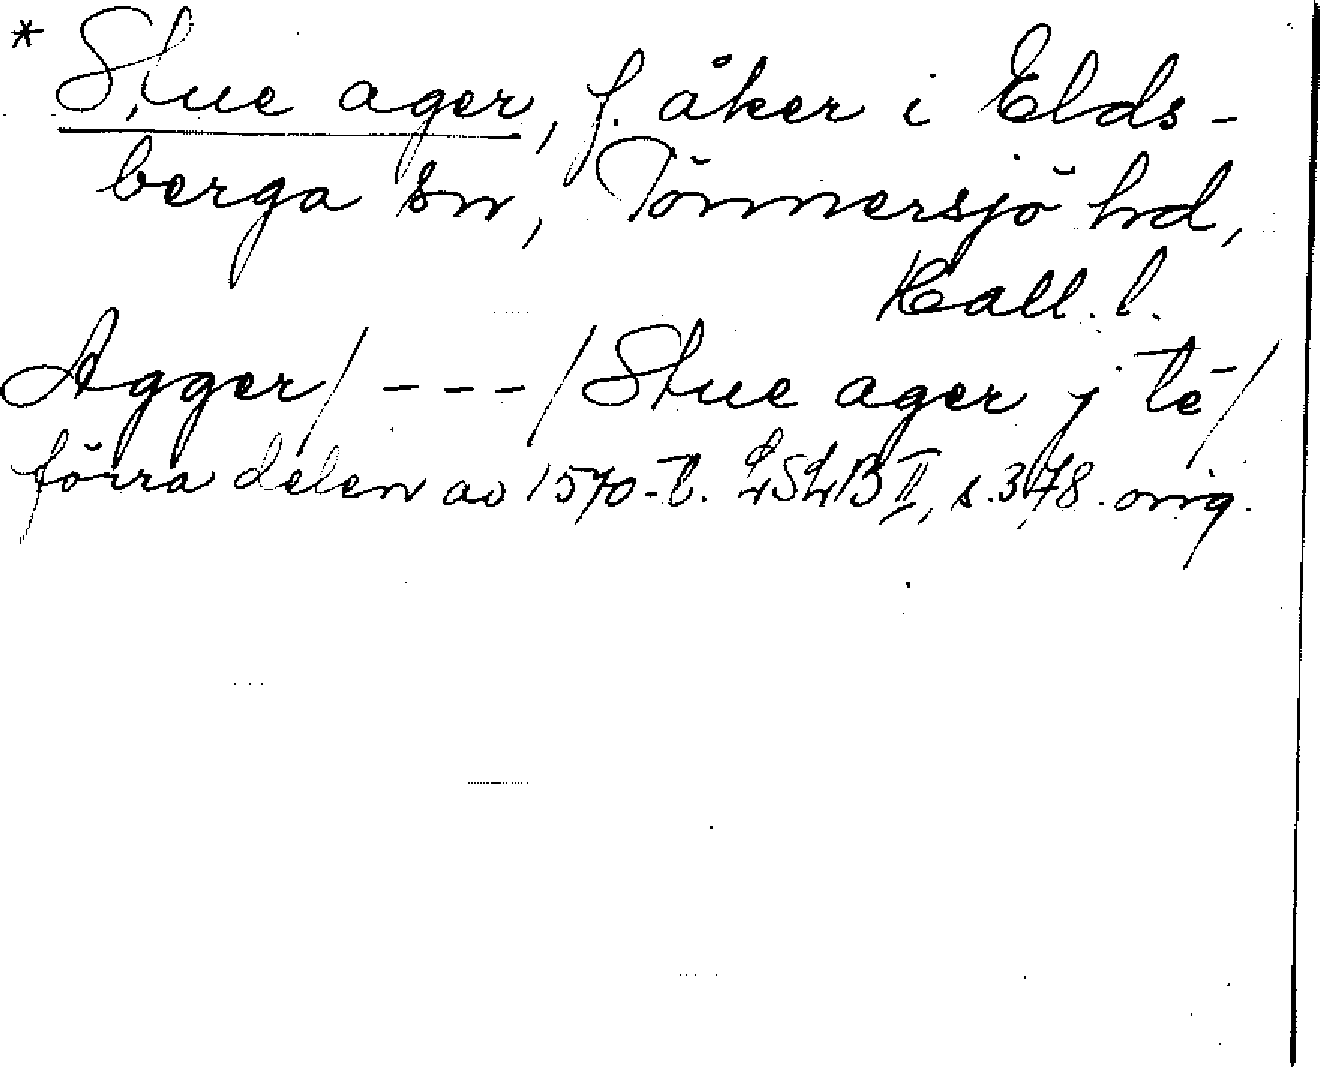 * Stue ager, f. åker i Elds-
berga sn, Tönnersjö hd,
Hall. l.
Agger/ - - - /Stue ager j té/
förra delen av 1570-t. LSLB II, s. 378. orig.